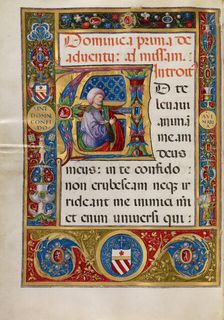 Dominica prima de
aduentu: ad missam.
Introit
D te
leuaui
animā
meam
deus
meus: in te confido
non erubescam neq3 ir
rideant me inimici mei
et enim uniuersi qui :·
IN
DOMINO
CONFI
DO